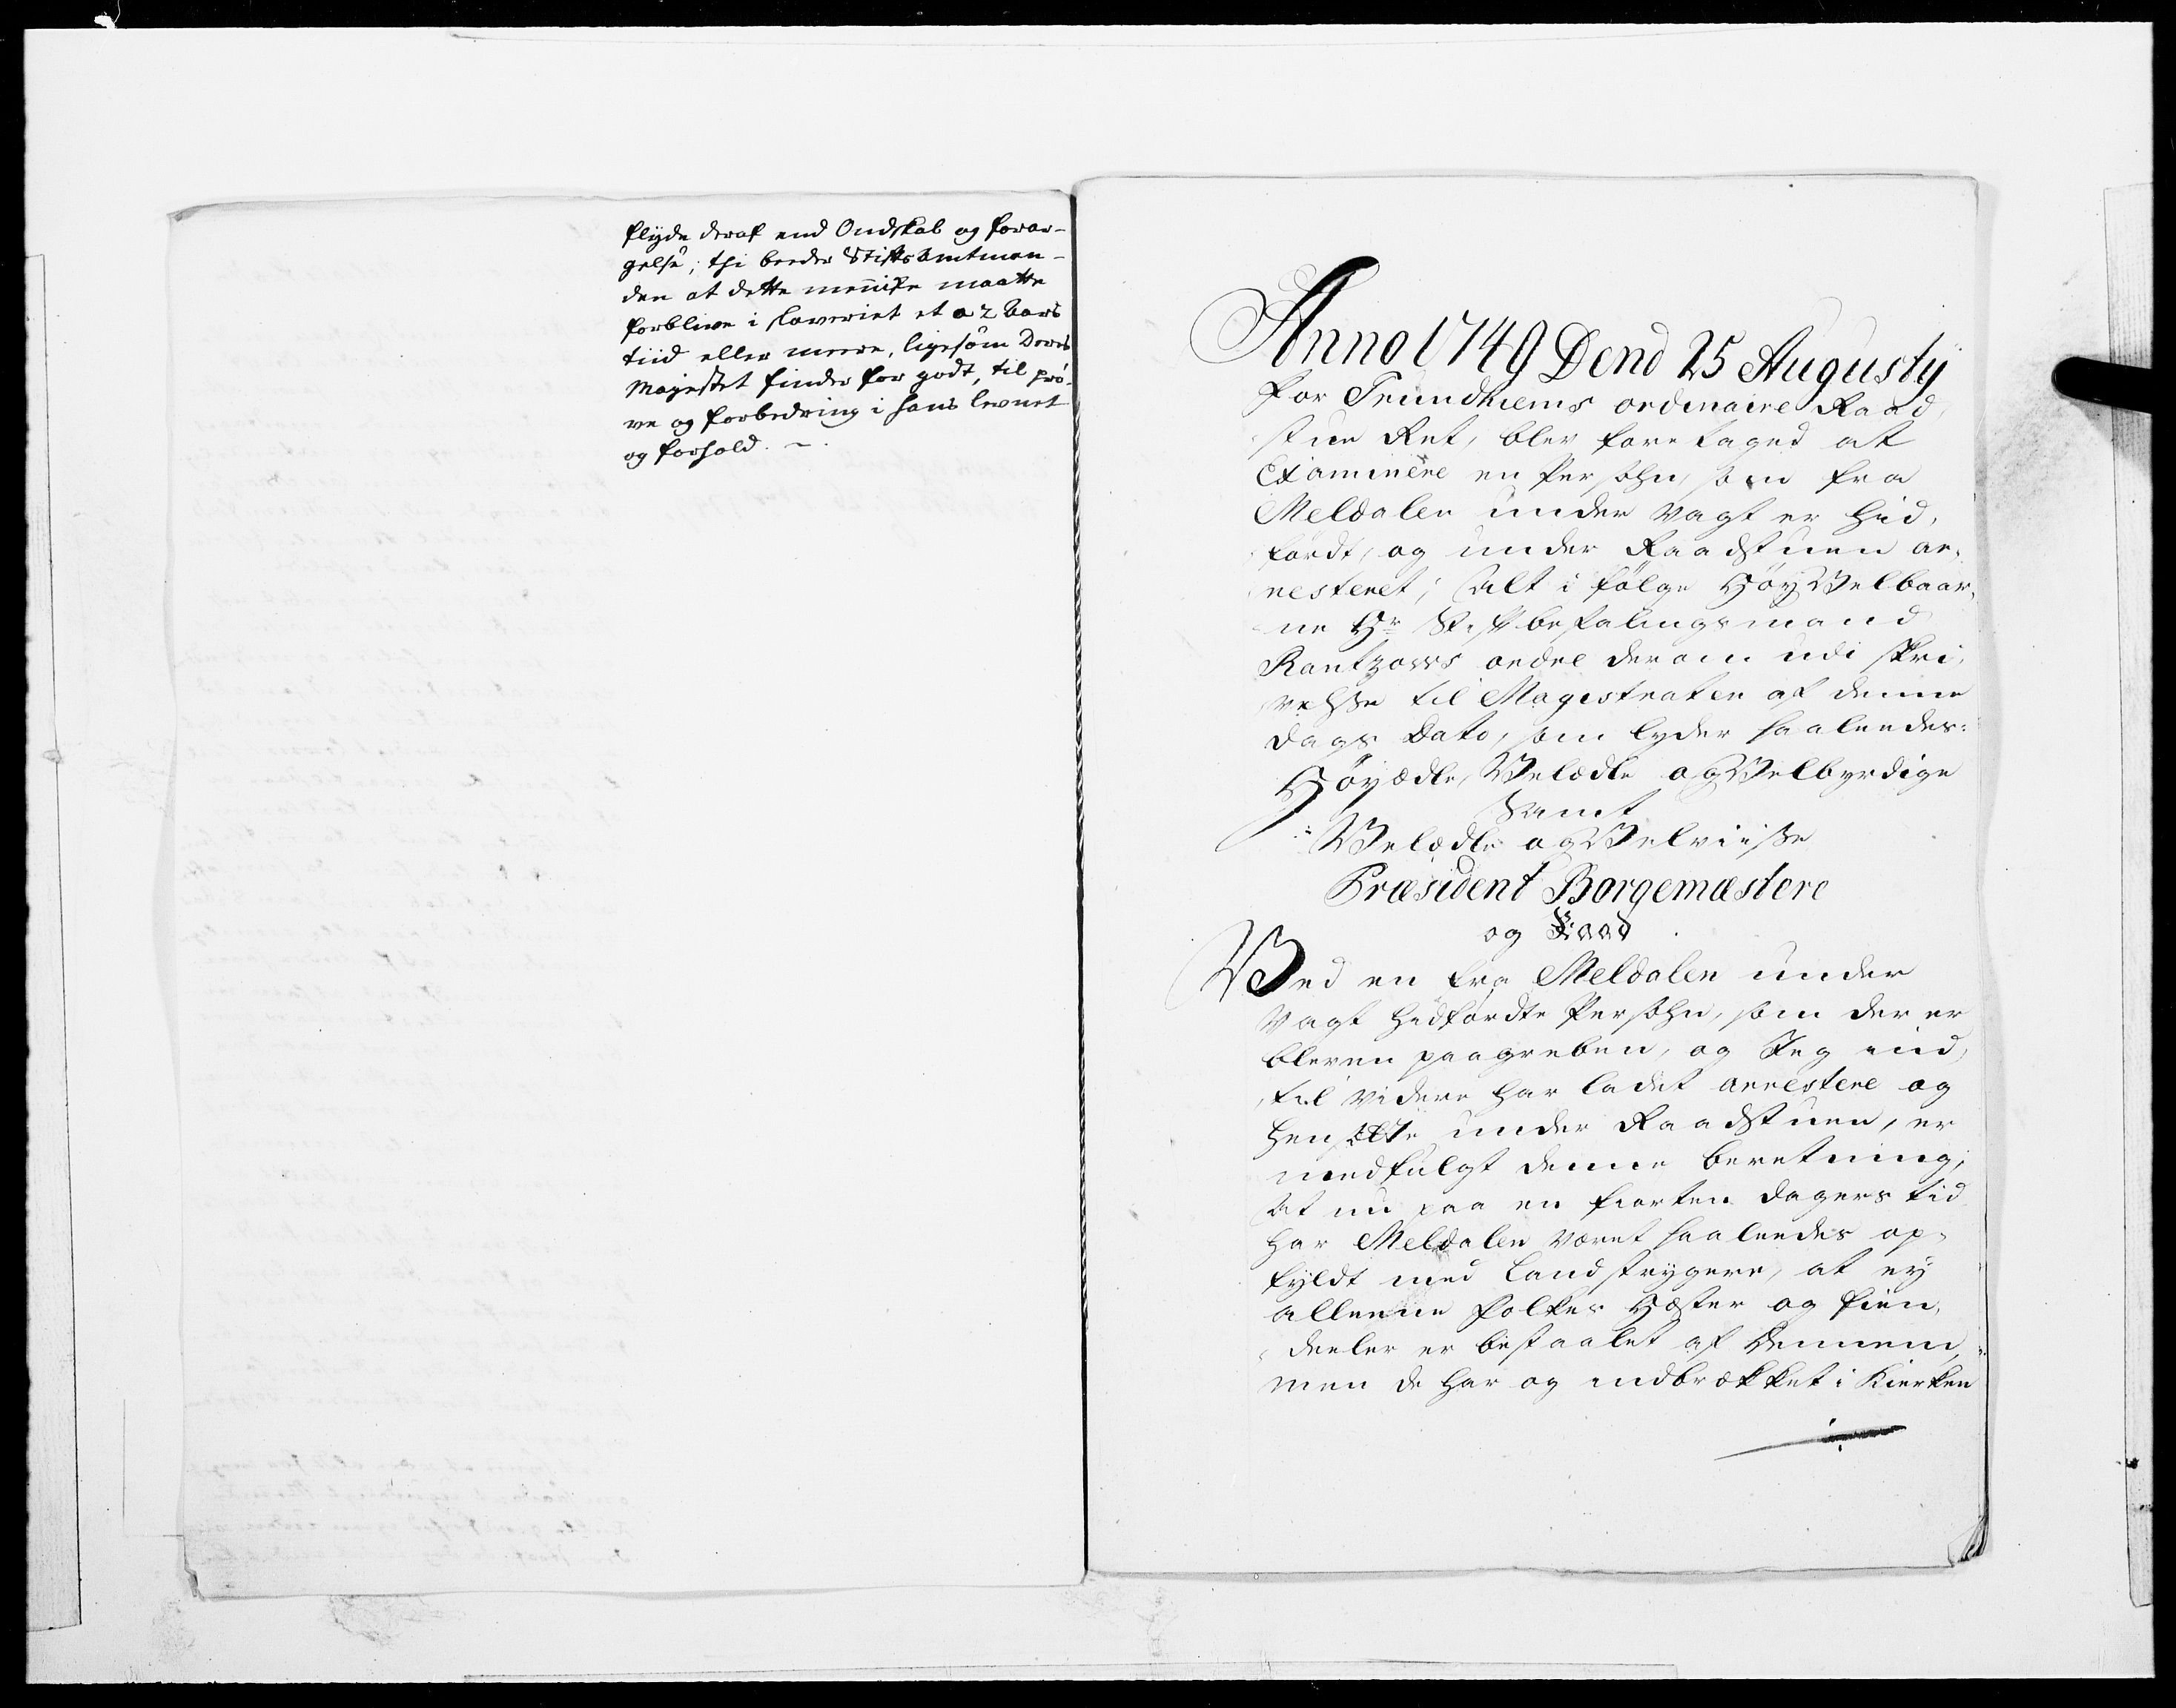 flyde deraf end Ondskab og forar-
gelse; thi beeder Stiftsamtman-
den at dette meniske maatte
forblive i slaveriet et a 2 Aars
tiid eller meere, ligesom Deres
Majestet finder for godt, til prö-
ve og forbedring i hans levnet
og forhold. -
Anno 1749 Dend 25 Augusty
for Trundhiems ordinaire Raad,
stue Ret, blev foretaged at
Examinere en Persohn, som fra
Meldalen under Vagt er hid,
fördt, og under Raadstuen ar,
resteret; alt i fölge HöyVelbaar,
ne Hr Stiftbefalingsmand
Rantzows ordre derom udi skri,
velsse til Magistraten af denne
dags Dato, som lyder saaleedes:
Höyædle, Velædle og Velbyrdige
Samt
Velædle og Velviisse
Præsident Borgemæstere
og Raad
Ved en fra Meldalen under
Vagt hidfördte Persohn, som der er
bleven paagreben, og Jeg ind,
til videre har ladet arrestere og
hensætte under Raadstuen, er
medfulgt denne beretning,
at nu paa en fiorten dagers tid
har Meldalen været saaleedes op,
fyldt med Landstrygere, at ey
alleene folkes Hæster og Eien,
deeler er bestaalet af Dennem,
men de har og indbrækket i Kierken